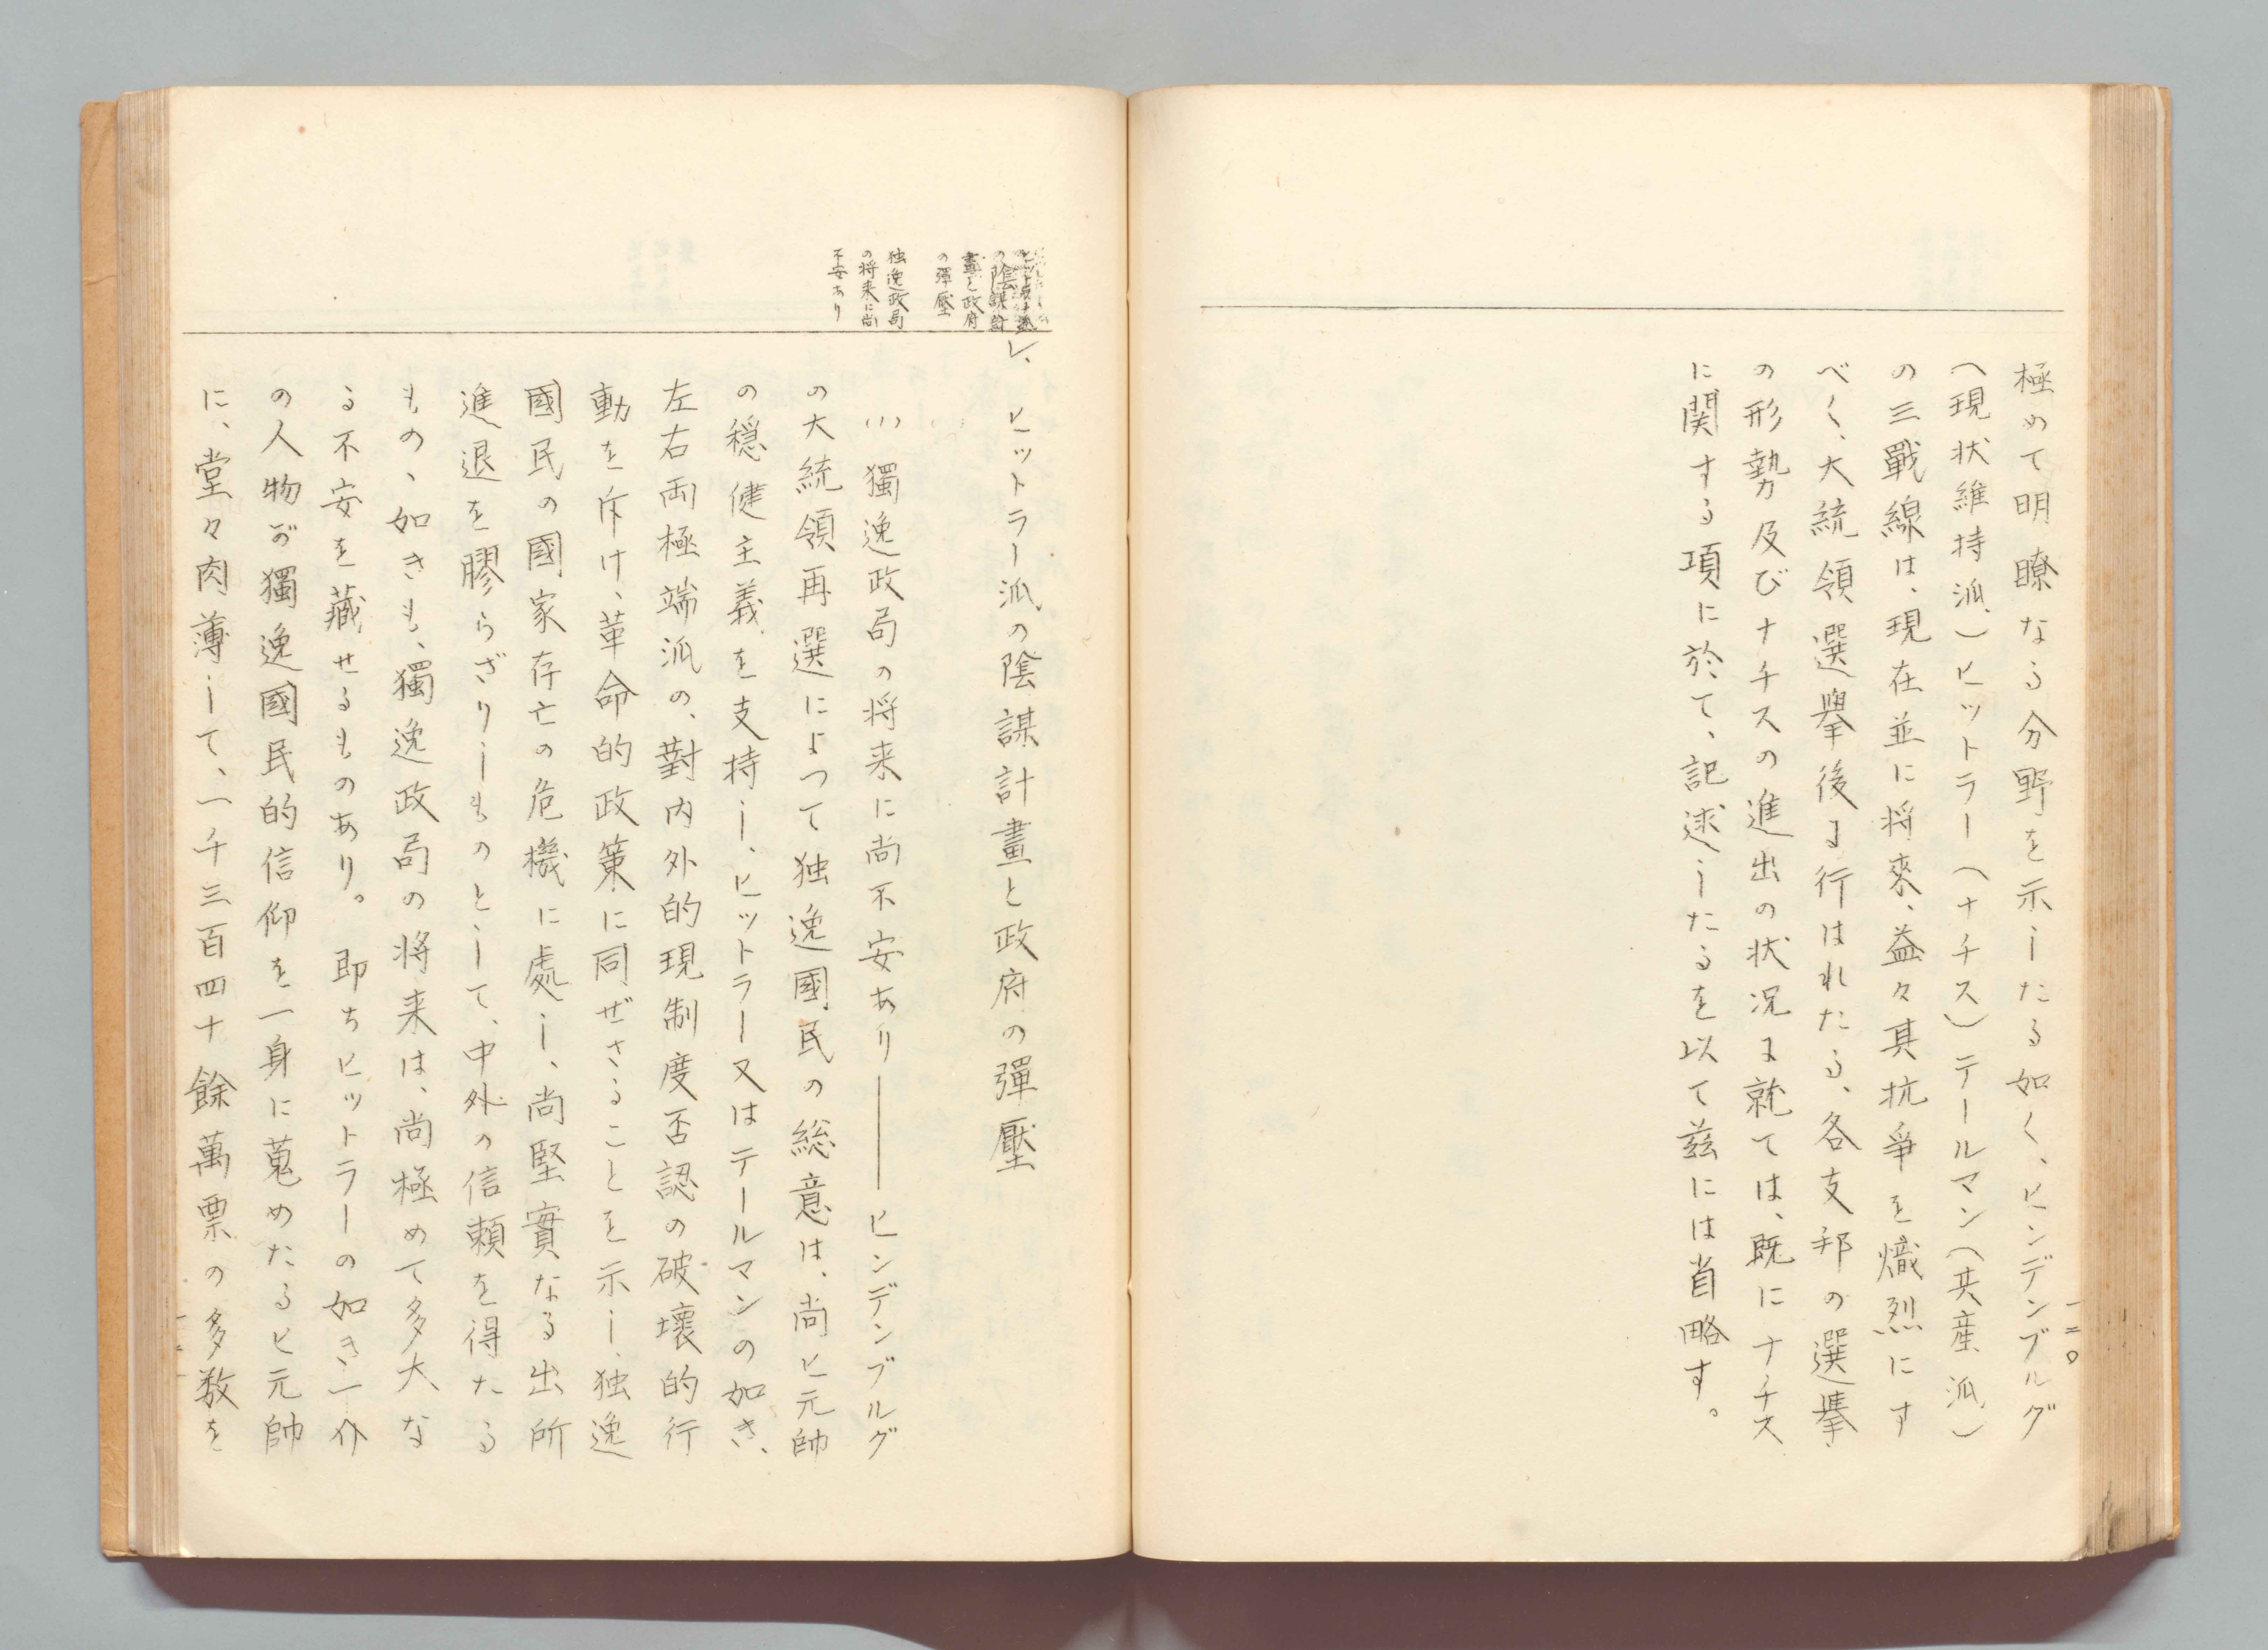 極めて明瞭なる分野を示したる如く、ヒンデンブルグ
(現状維持派、)ヒットラー(ナチス)テールマン(共産派)
の三戰線は、現在並に将來、益々其抗爭を熾烈にす
べく、大統領選擧後に行はれたる、各支邦の選擧
の形勢及びナチスの進出の状况に就ては、既にナチス
に関する項に於て、記述したるを以て茲には省略す。
一二〇
の陰謀計
畫と政府
の彈壓
独逸政局
の将来に尚
不安あり
レ、ヒットラー派の陰謀計畫と政府の彈壓
(1)獨逸政局の将来に尚不安あり――ヒンデンブルグ
の大統領再選によつて独逸國民の総意は、尚ヒ元帥
の穏健主義を支持し、ヒットラー又はテールマンの如き、
左右両極端派の、對内外的現制度否認の破壊的行
動を斥け、革命的政策に同ぜざることを示し、独逸
國民の國家存亡の危機に處し、尚堅實なる出所
進退を膠らざりしものとして、中外の信頼を得たる
もの、如きも、獨逸政局の将来は、尚極めて多大な
る不安を藏せるものあり。即ちヒットラーの如き一介
の人物が獨逸國民的信仰を一身に蒐めたるヒ元帥
に、堂々肉薄して、一千三百四十餘萬票の多数を